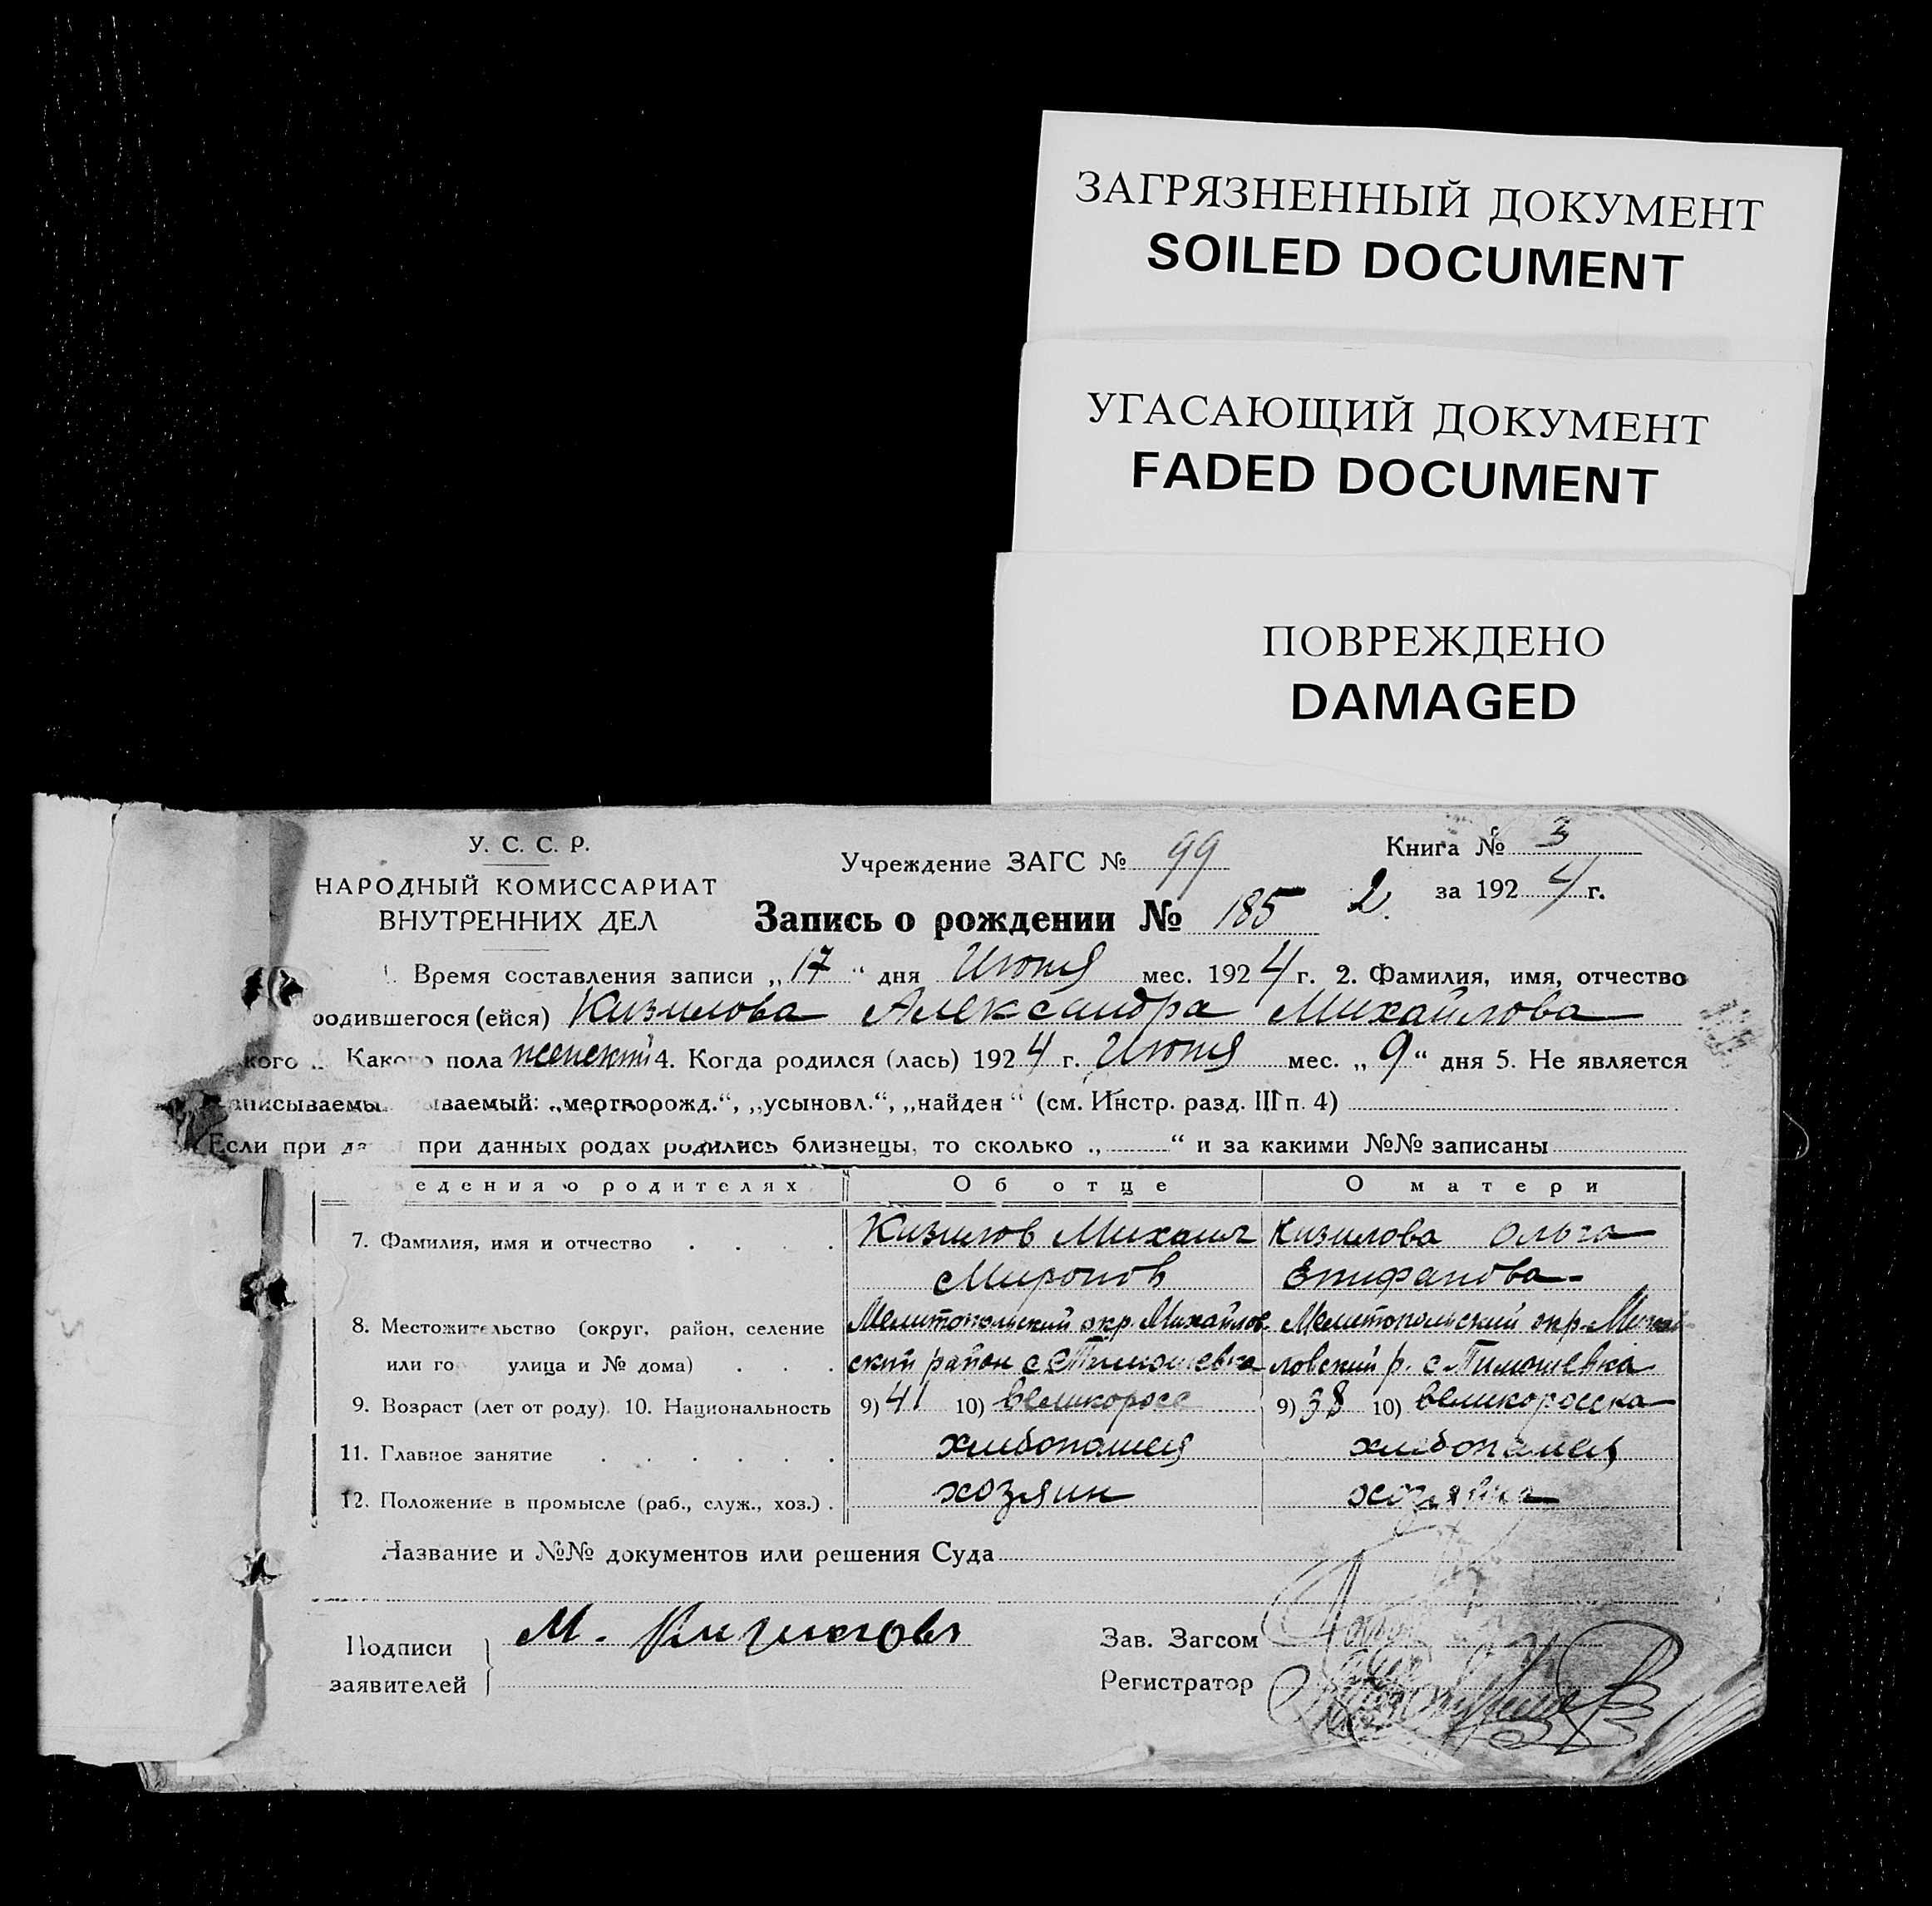 ЗАГРЯЗНЕННЫЙ ДОКУМЕНТ
SOILED DOCUMENT
УГАСАЮЩИЙ ДОКУМЕНТ
FADED DOCUMENT
ПОВРЕЖДЕНО
DAMAGED
У. С. С. Р.
НАРОДНЫЙ КОМИССАРИАТ
ВНУТРЕННИХ ДЕЛ
Учреждение ЗАГС № 99
Книга № 3
за 1924 г.
Запись о рождении № 185 2.
Время составления записи „17“ дня Июня мес. 1924 г. 2. Фамилия, имя, отчество
родившегося (ейся) Кизилова Александра Михайлова
кого Какого пола женский 4. Когда родился (лась) 1924 г. Июня мес. „9“ дня 5. Не является
записываемы ываемый: „мертворожд.“, „усыновл.“, „найден“ (см. Инстр. разд. III п. 4)
Если при да при данных родах родились близнецы, то сколько „ “ и за какими №№ записаны
едения о родителях Об отце О матери
7. Фамилия, имя и отчество Кизилов Михаил Кизилова Ольга
Миронов Епифанова
8. Местожительство (округ, район, селение Мелитопольский окр. Михайлов- Мелитопольский окр. Михай-
или го улица и № дома) ский район с. Тимошевка ловский р. с. Тимошевка
9. Возраст (лет от роду). 10. Национальность 9) 41 10) великоросс 9) 38 10) великоросска
11. Главное занятие хлебопашец хлебопашец
12. Положение в промысле (раб., служ., хоз.) хозяин хозяйка
Название и №№ документов или решения Суда
Подписи
заявителей
М. Кизиловъ
Зав. Загсом
Регистратор